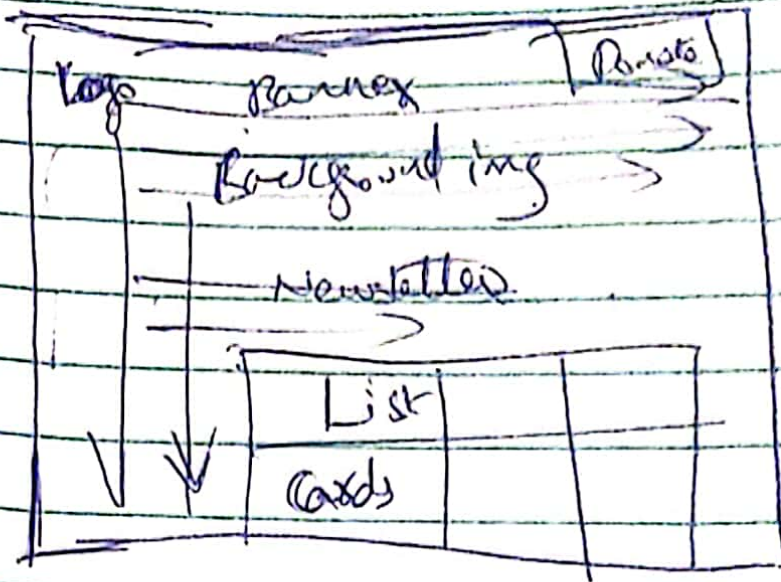 Logo Banner Donate
Background img
Newsletter
List
Cards